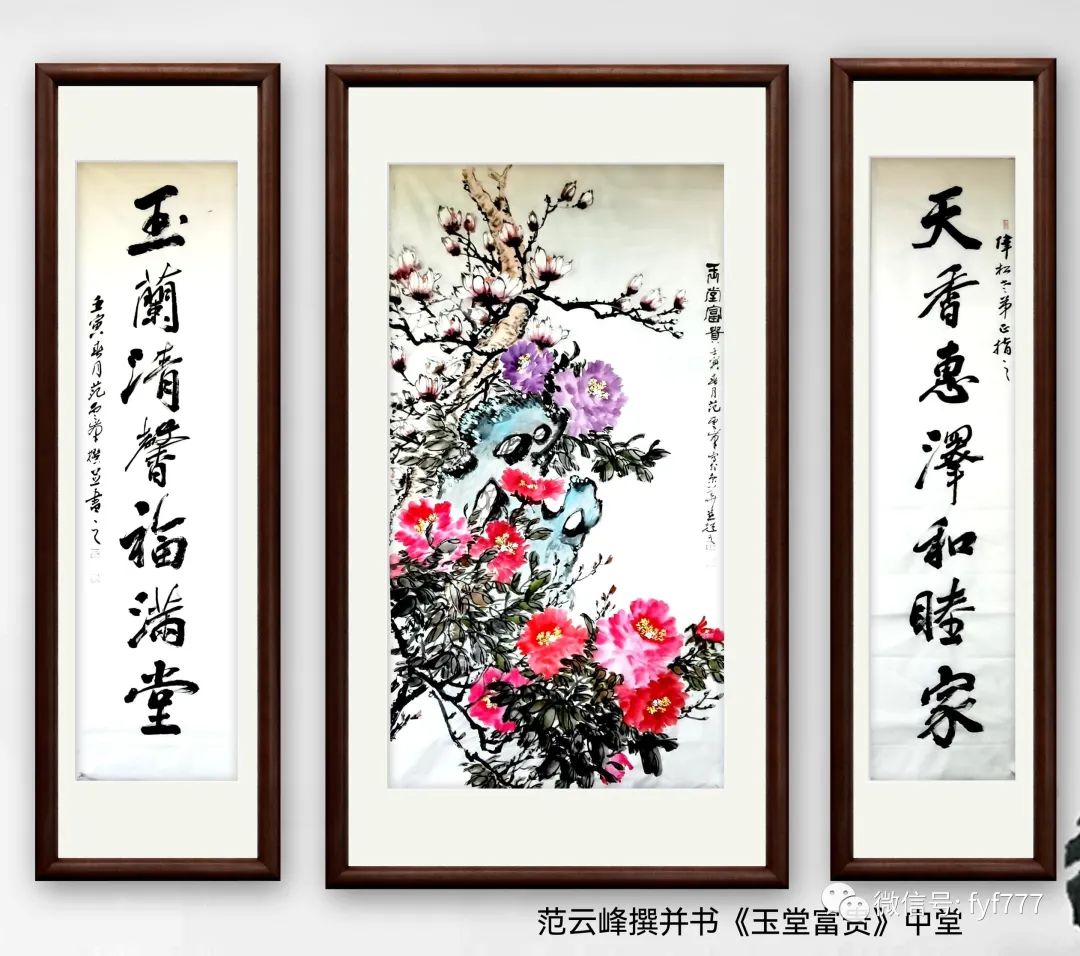 天香惠澤和睦家
偉松老弟正指之
玉堂富貴
壬寅春月范雲峯
玉蘭清馨福滿堂
壬寅春月范雲峯撰並書之
微信号: fyf777
范云峰撰并书《玉堂富贵》中堂